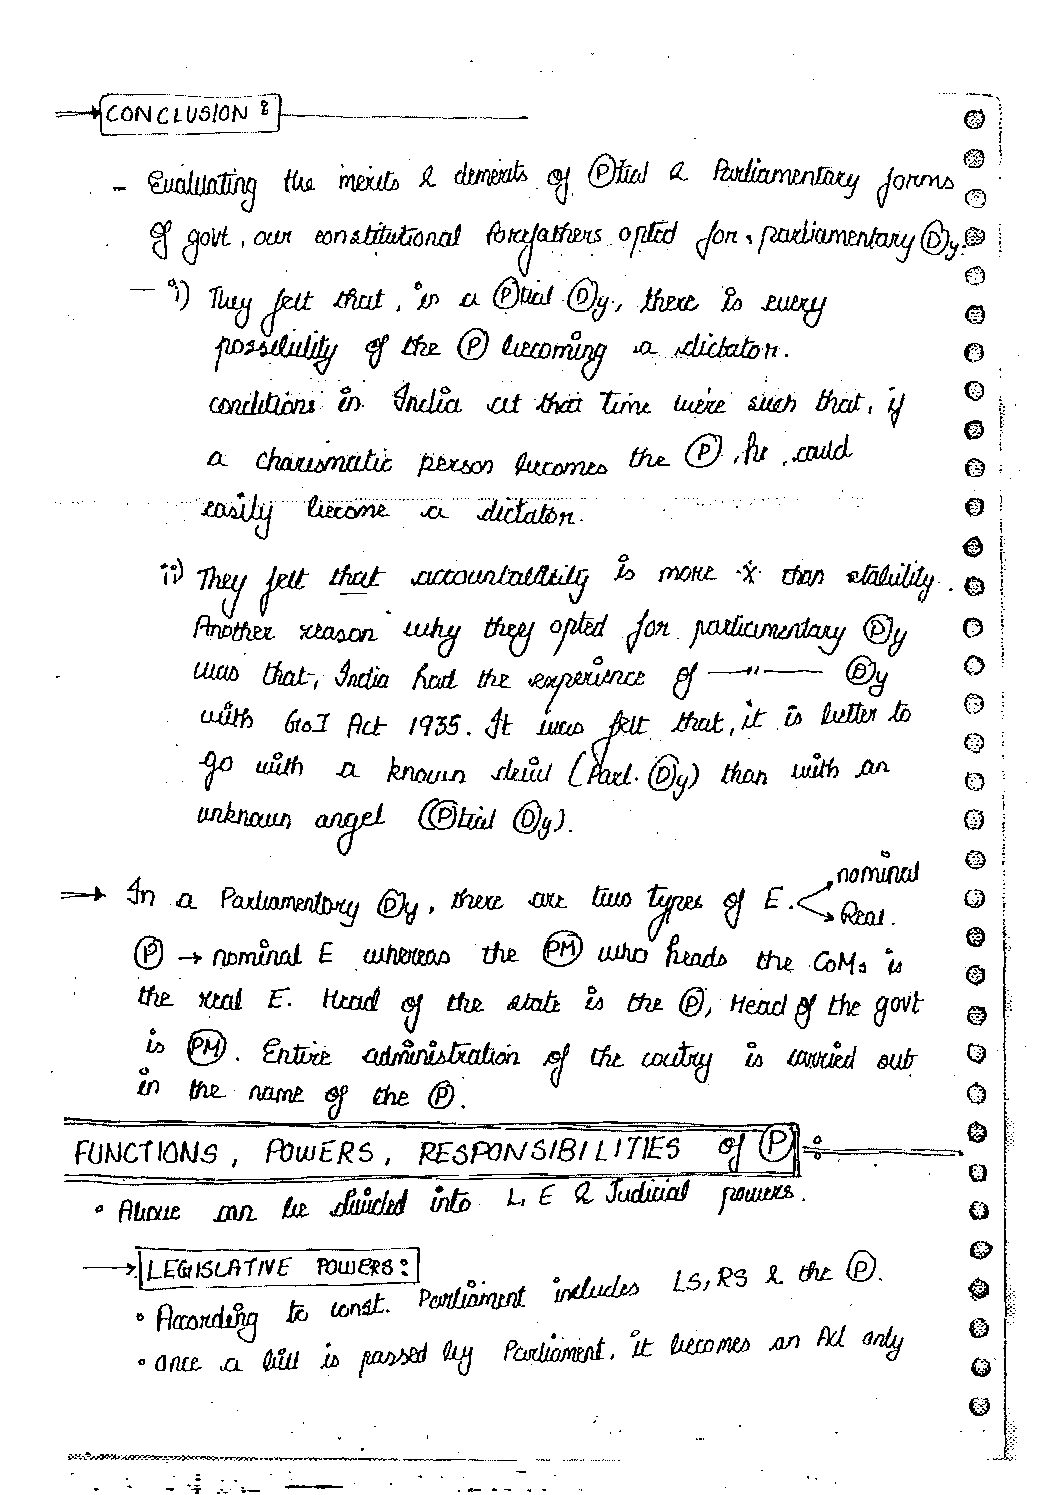 → CONCLUSION :
- Evaluating the merits & demerits of Ⓟtial & Parliamentary forms
of govt, our constitutional forefathers opted for parliamentary Ⓓy.
- i) They felt that, in a Ⓟtial Ⓓy, there is every
possibility of the Ⓟ becoming a dictator.
conditions in India at that time were such that, if
a charismatic person becomes the Ⓟ, he could
easily become a dictator.
ii) They felt that accountability is more × than stability.
Another reason why they opted for parliamentary Ⓓy
was that, India had the experience of —"— Ⓓy
with GoI Act 1935. It was felt that, it is better to
go with a known devil (Parl. Ⓓy) than with an
unknown angel (Ⓟtial Ⓓy).
→ In a Parliamentary Ⓓy, there are two types of E. nominal
Real.
Ⓟ → nominal E whereas the PM who heads the CoMs is
the real E. Head of the state is the Ⓟ, Head of the govt
is PM. Entire administration of the coutry is carried out
in the name of the Ⓟ.
FUNCTIONS, POWERS, RESPONSIBILITIES of Ⓟ :
• Above can be divided into L, E & Judicial powers.
→ LEGISLATIVE POWERS :
• According to const. Parliament includes LS, RS & the Ⓟ.
• once a bill is passed by Parliament, it becomes an Act only